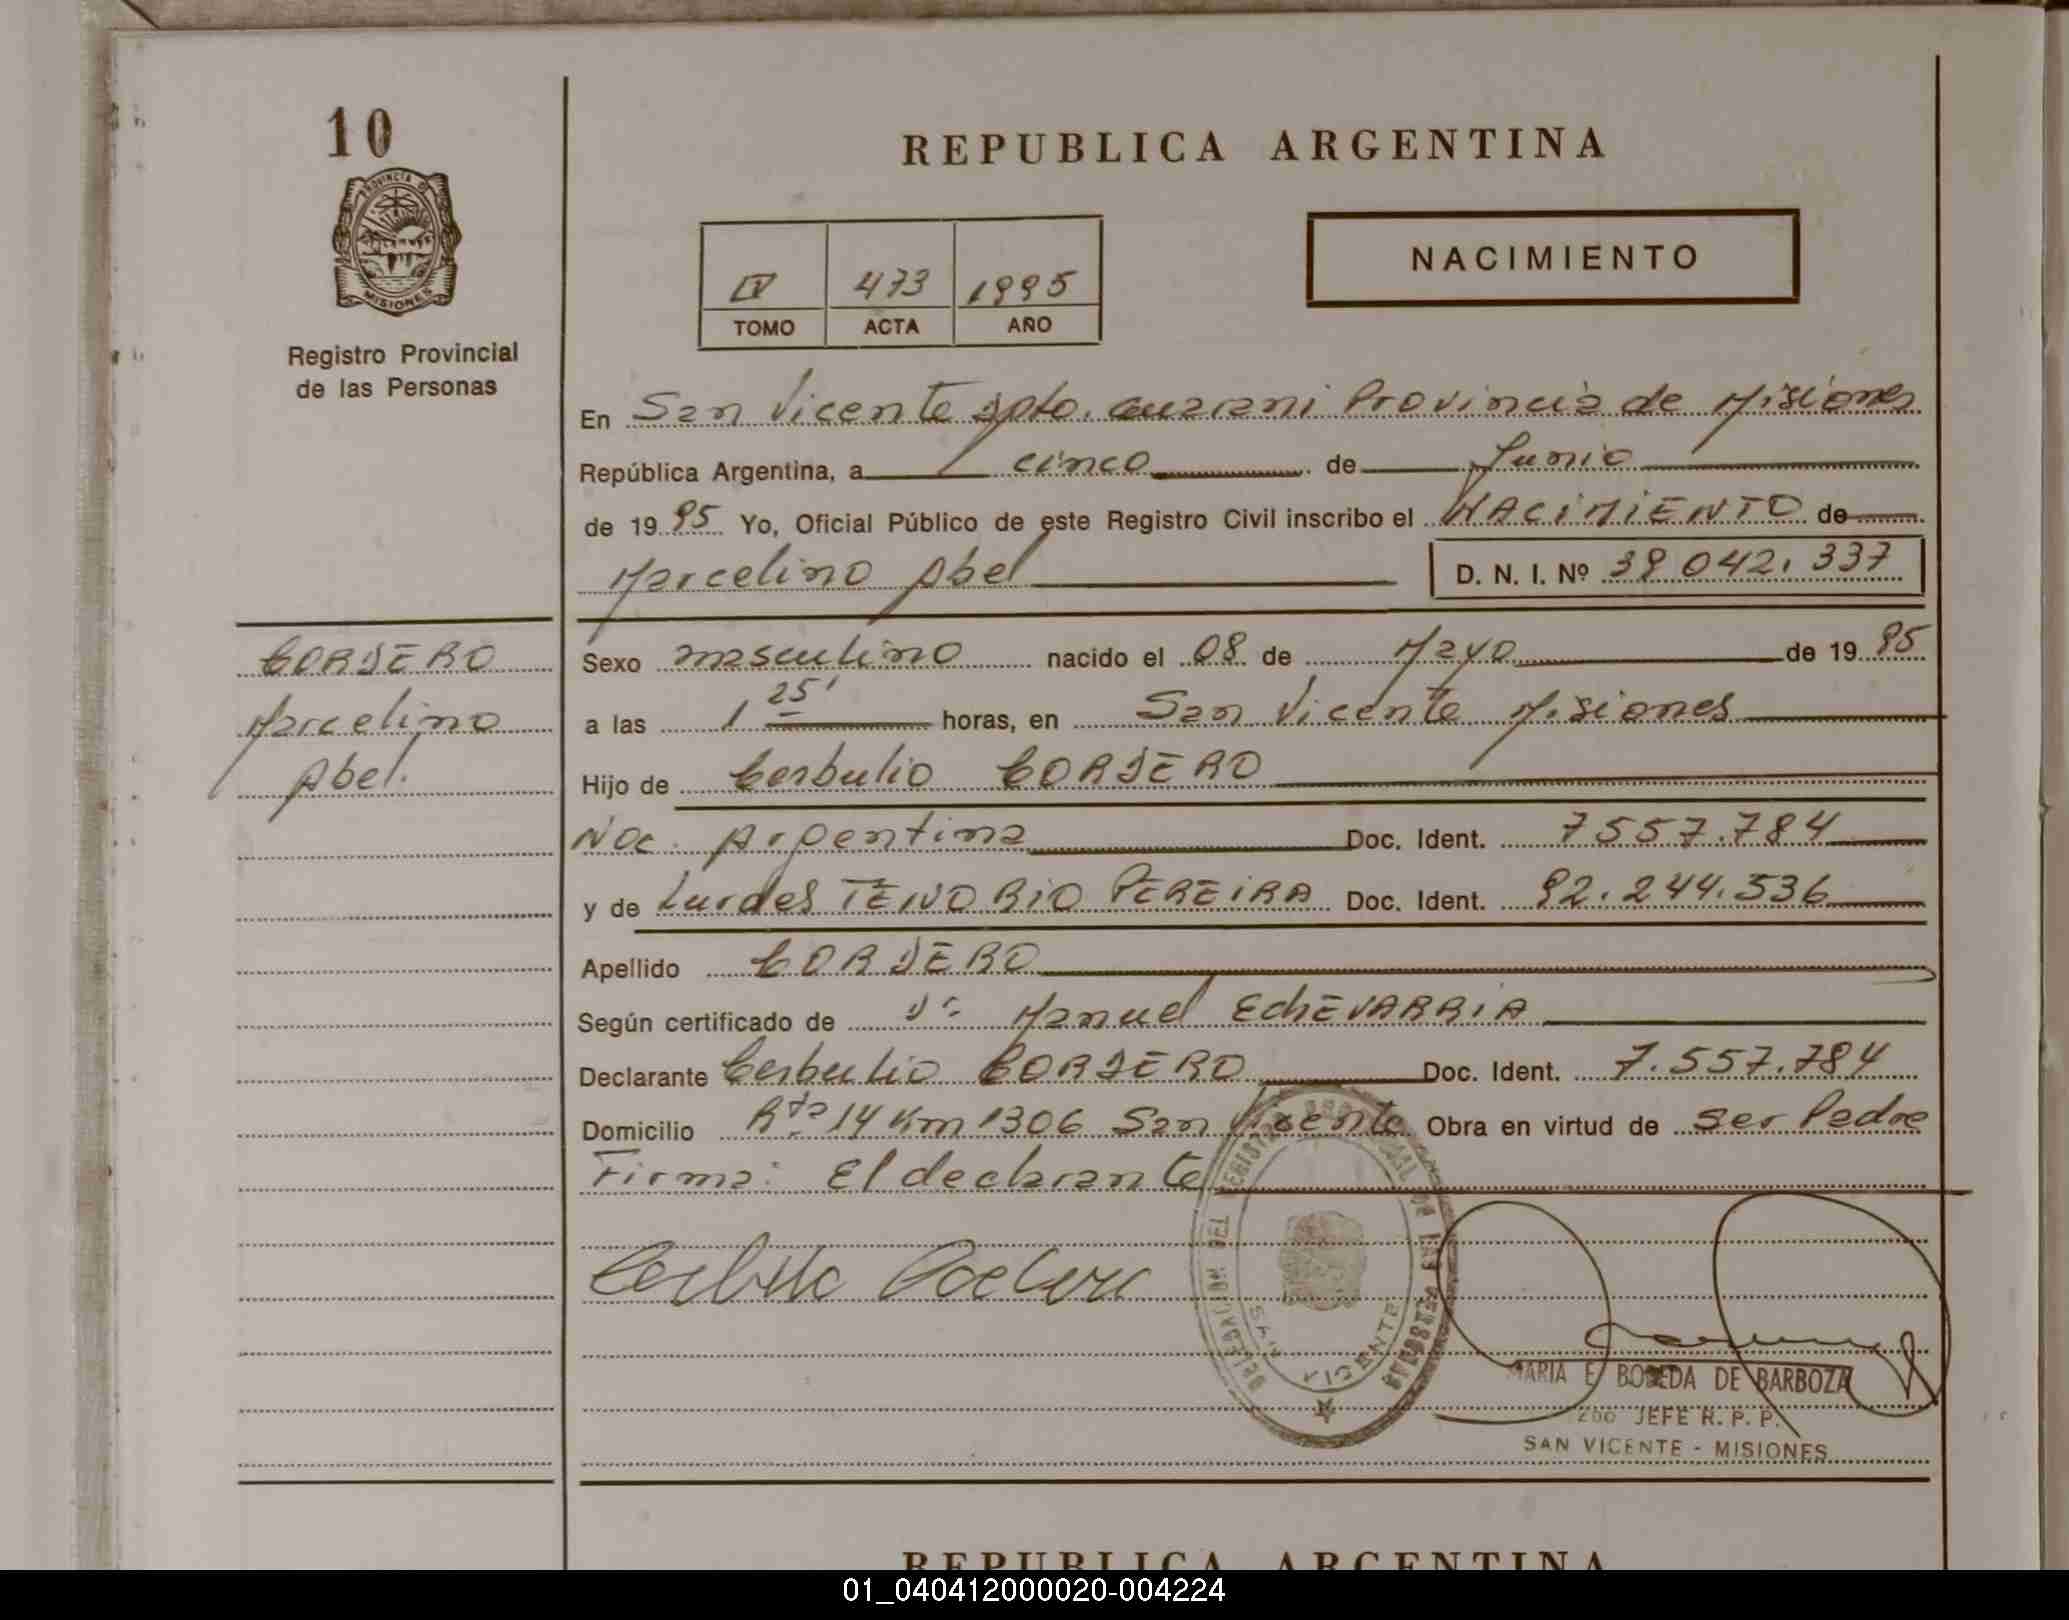 10
PROVINCIA DE
MISIONES
Registro Provincial
de las Personas
REPUBLICA ARGENTINA
IV 473 1995
TOMO ACTA AÑO
NACIMIENTO
En San Vicente Dpto. Guarani Provincia de Misiones
República Argentina, a cinco de Junio
de 1995 Yo, Oficial Público de este Registro Civil inscribo el NACIMIENTO de
Marcelino Abel D. N. I. Nº 39.042.337
CORDERO
Marcelino
Abel.
Sexo masculino nacido el 08 de Mayo de 1995
a las 1 25' horas, en San Vicente Misiones
Hijo de Cerbulio CORDERO
Nac. Argentina Doc. Ident. 7557.784
y de Lurdes TENORIO PEREIRA Doc. Ident. 92.244.536
Apellido CORDERO
Según certificado de Dr. Manuel EChEVARRIA
Declarante Cerbulio CORDERO Doc. Ident. 7.557.784
Domicilio Rta 14 Km 1306 San Vicente Obra en virtud de ser Padre
Firma: El declarante
DELEGACION DEL REGISTRO PROVINCIAL DE LAS PERSONAS
SAN VICENTE
MARIA E. DE BARBOZA
2do JEFE R. P. P.
SAN VICENTE - MISIONES
REPUBLICA ARGENTINA
01_040412000020-004224